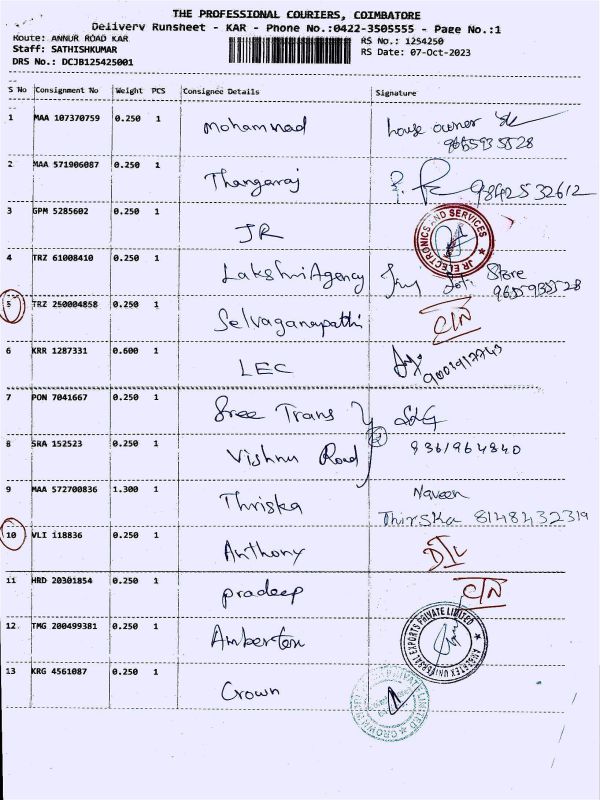 THE PROFESSIONAL COURIERS, COIMBATORE
Delivery Runsheet - KAR - Phone No.:0422-3505555 - Page No.:1
Route: ANNUR ROAD KAR RS No.: 1254250
Staff: SATHISHKUMAR RS Date: 07-Oct-2023
DRS No.: DCJB125425001
S No Consignment No Weight PCS Consignee Details Signature
1 MAA 107370759 0.250 1 Mohammad house owner
9655935528
2 MAA 571906087 0.250 1 Thangaraj 9842532612
3 GPM 5285602 0.250 1 JR JR ELECTRONICS AND SERVICES
4 TRZ 61008410 0.250 1 Lakshri Agency Store
9655935528
5 TRZ 250004858 0.250 1 Selvaganapathi C/N
6 KRR 1287331 0.600 1 LEC
7 PON 7041667 0.250 1 Sree Trans
8 SRA 152523 0.250 1 Vishnu Road 9361964840
9 MAA 572700836 1.300 1 Thriska Naveen
Thirska 8148432319
10 VLI 118836 0.250 1 Anthony D/L
11 HRD 20301854 0.250 1 pradeep C/N
12 TMG 200499381 0.250 1 Amberten UNIVERSAL EXPORTS PRIVATE LIMITED
13 KRG 4561087 0.250 1 Crown CROWN PRIVATE LIMITED